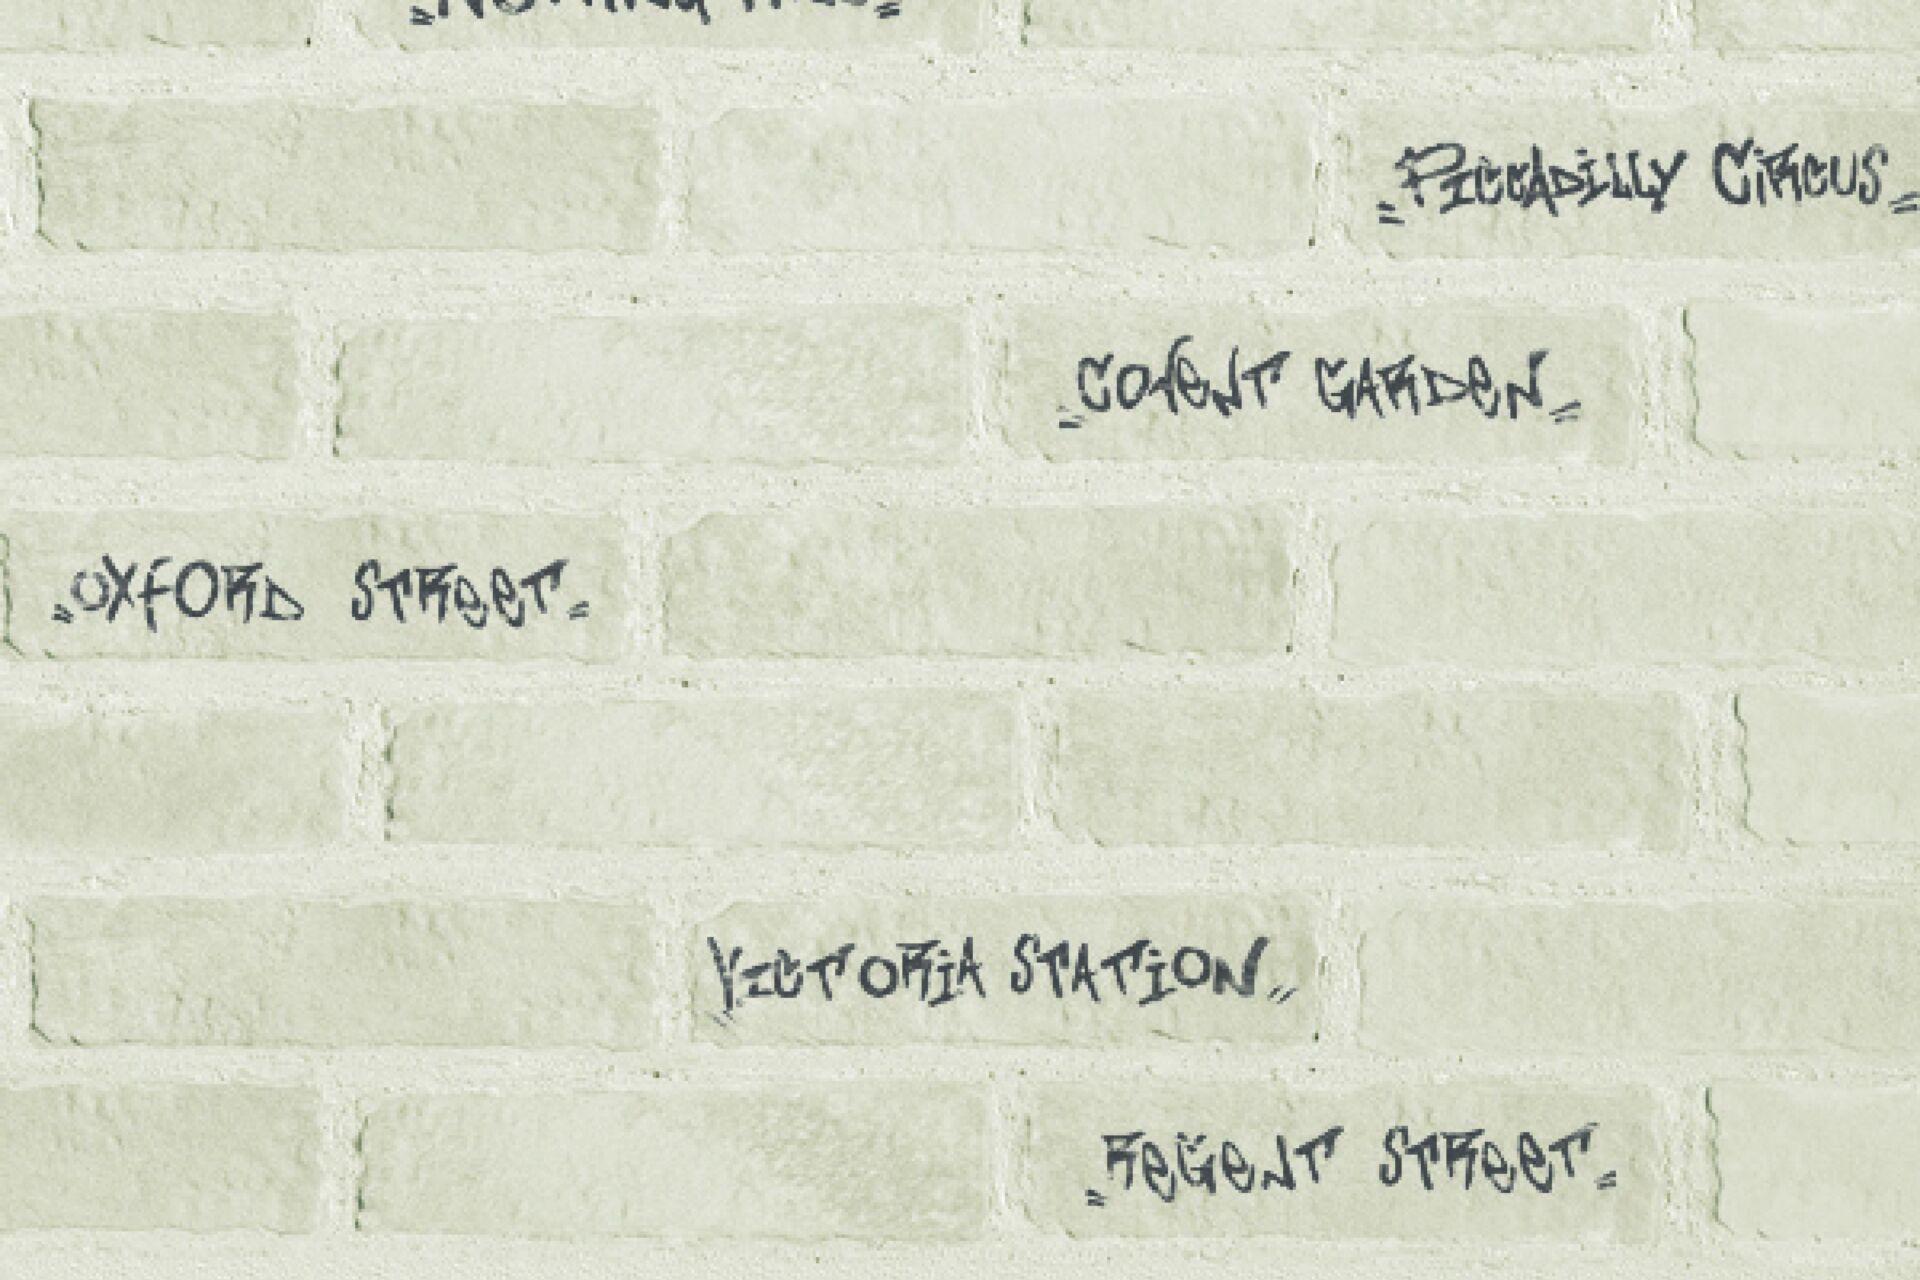 Piccadilly Circus
Covent Garden
Oxford Street
Victoria Station
Regent Street